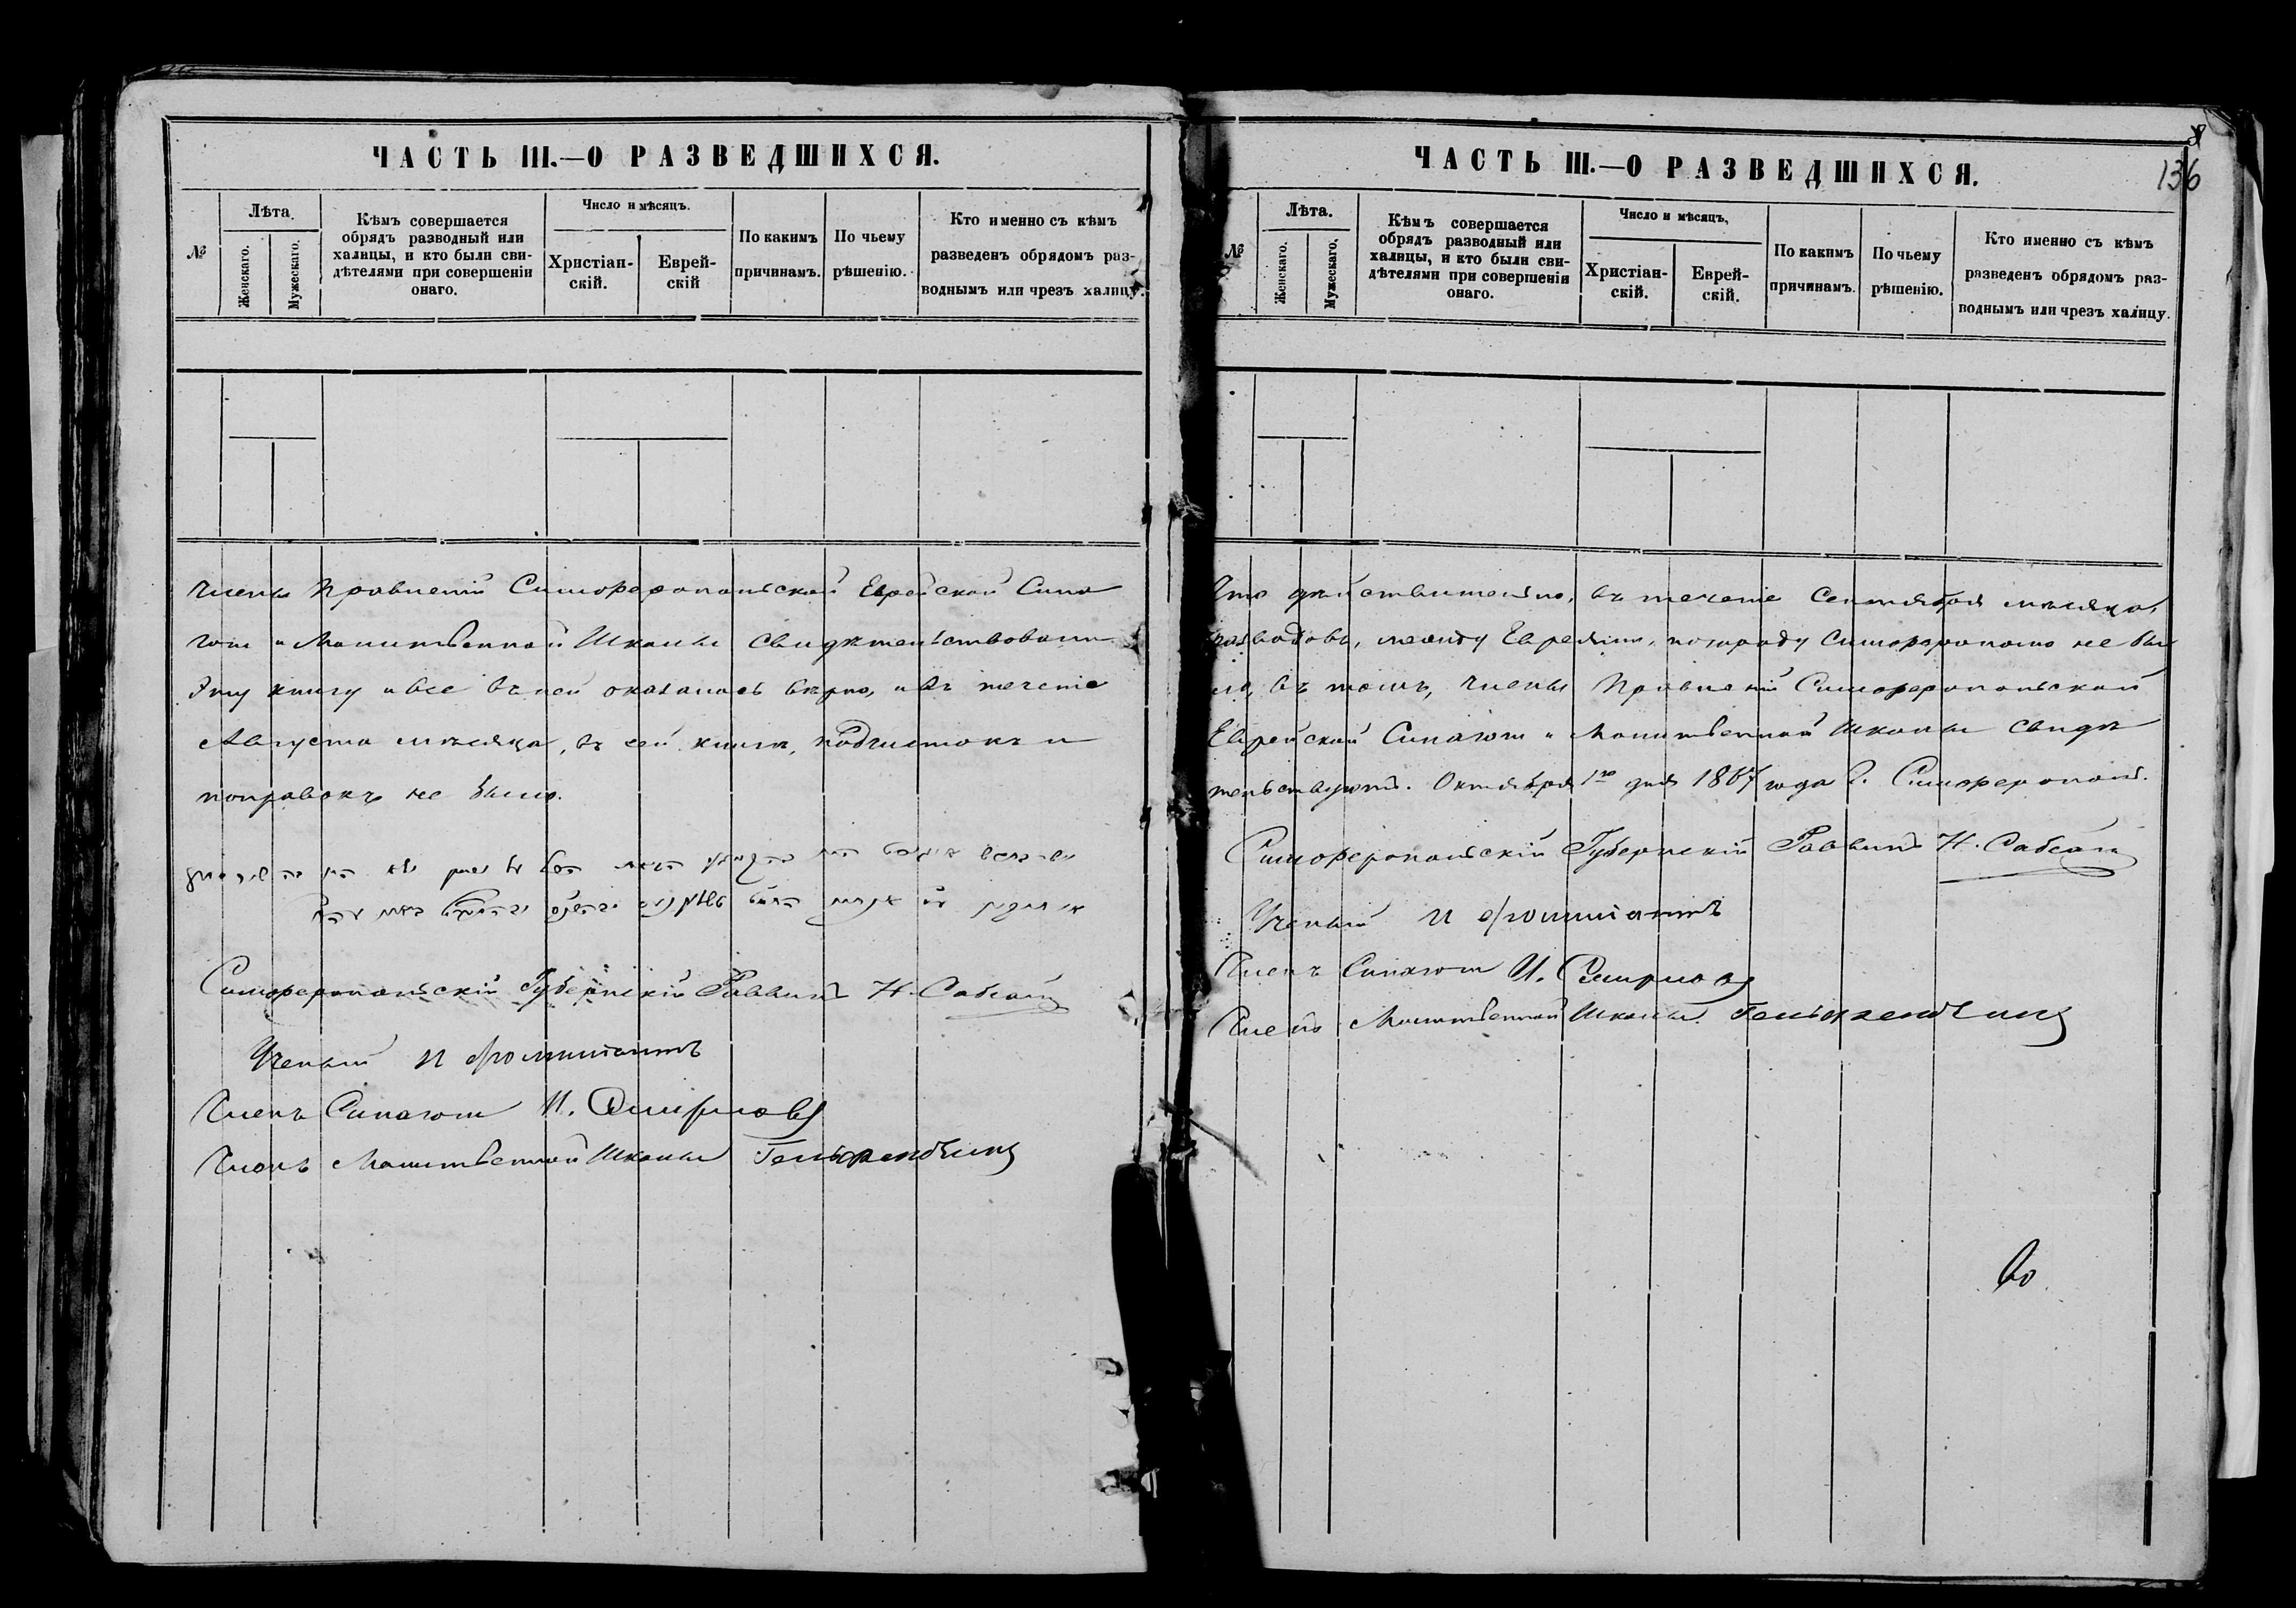 ЧАСТЬ III.—О РАЗВЕДШИХСЯ.
№
Лѣта.
Женскаго.
Мужескаго.
Кѣмъ совершается
обрядъ разводный или
халицы, и кто были сви-
дѣтелями при совершеніи
онаго.
Число и мѣсяцъ.
Христіан-
скій.
Еврей-
скій
По какимъ
причинамъ.
По чьему
рѣшенію.
Кто именно съ кѣмъ
разведенъ обрядомъ раз-
воднымъ или чрезъ халицу.
Члены Правленій Симферопольской Еврейской Сина
гоги и Молитвенной Школы свидѣтельствовали
Эту книгу и все въ ней оказалось вѣрно, и въ теченіе
Августа мѣсяца, въ сей книгѣ, подчистокъ и
поправокъ не было.
Симферопольскій Губернскій Раввинъ Н.
Ученый И
Членъ Синагоги И. Смирновъ
Членъ Молитвенной Школы
8
136
ЧАСТЬ III.—О РАЗВЕДШИХСЯ.
№
Лѣта.
Женскаго.
Мужескаго.
Кѣмъ совершается
обрядъ разводный или
халицы, и кто были сви-
дѣтелями при совершеніи
онаго.
Число и мѣсяцъ.
Христіан-
скій.
Еврей-
скій.
По какимъ
причинамъ.
По чьему
рѣшенію.
Кто именно съ кѣмъ
разведенъ обрядомъ раз-
воднымъ или чрезъ халицу.
Что дѣйствительно, въ теченіе Сентября мѣсяца,
разводовъ, между Евреями, по городу Симферополю не бы
ло, въ томъ, Члены Правленій Симферопольской
Еврейской Синагоги и Молитвенной Школы свидѣ
тельствуютъ. Октября 1го дня 1867 года Г. Симферополь.
Симферопольскій Губернскій Раввинъ Н.
Ученый И
Членъ Синагоги И. Смирновъ
Членъ Молитвенной Школы